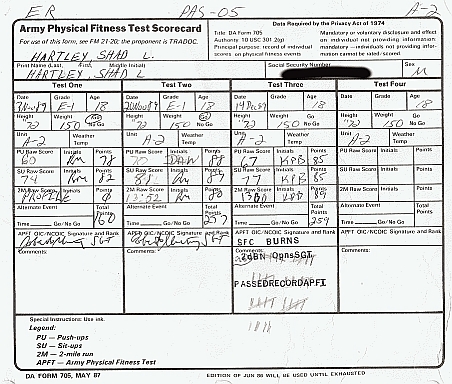 ER PAS-05 A-2
Army Physical Fitness Test Scorecard
For use of this form, see FM 21-20; the proponent is TRADOC.
Title DA Form 705
Authority 10 USC 301 2(g)
Principal purpose: record of individual scores on physical fitness events
Data Required by the Privacy Act of 1974
Mandatory or voluntary disclosure and effect on individual not providing information: mandatory—individuals not providing information cannot be rated/scored.
HARTLEY, SHAD L.
Print Name (Last, First, Middle Initial) Social Security Number Sex
HARTLEY, SHAD L M
Test One Test Two Test Three Test Four
Date Grade Age Date Grade Age Date Grade Age Date Grade Age
E-1 18 E-1 18 18 18
Height Weight Go No Go Height Weight Go No Go Height Weight Go No Go Height Weight Go No Go
72 150 72 150 72 150 72 150
Unit Weather Temp Unit Weather Temp Unit Weather Temp Unit Weather Temp
A-2 A-2 A-2 A-2
PU Raw Score Initials Points PU Raw Score Initials Points PU Raw Score Initials Points PU Raw Score Initials Points
60 78 70 88 67 KPB 85
SU Raw Score Initials Points SU Raw Score Initials Points SU Raw Score Initials Points SU Raw Score Initials Points
74 82 77 KPB 85
2M Raw Score Initials Points 2M Raw Score Initials Points 2M Raw Score Initials Points 2M Raw Score Initials Points
PROFILE 0 13:52 89
Alternate Event Total Points Alternate Event Total Points Alternate Event Total Points Alternate Event Total Points
Time Go/No Go 160 Time Go/No Go Time Go/No Go 259 Time Go/No Go
APFT OIC/NCOIC Signature and Rank APFT OIC/NCOIC Signature and Rank APFT OIC/NCOIC Signature and Rank APFT OIC/NCOIC Signature and Rank
SGT SGT SFC BURNS
Comments: Comments: Comments: Comments:
2dBN OpnsSGT
PASSEDRECORDAPFT
Special Instructions: Use ink.
Legend:
PU — Push-ups
SU — Sit-ups
2M — 2-mile run
APFT — Army Physical Fitness Test
DA FORM 705, MAY 87 EDITION OF JUN 86 WILL BE USED UNTIL EXHAUSTED